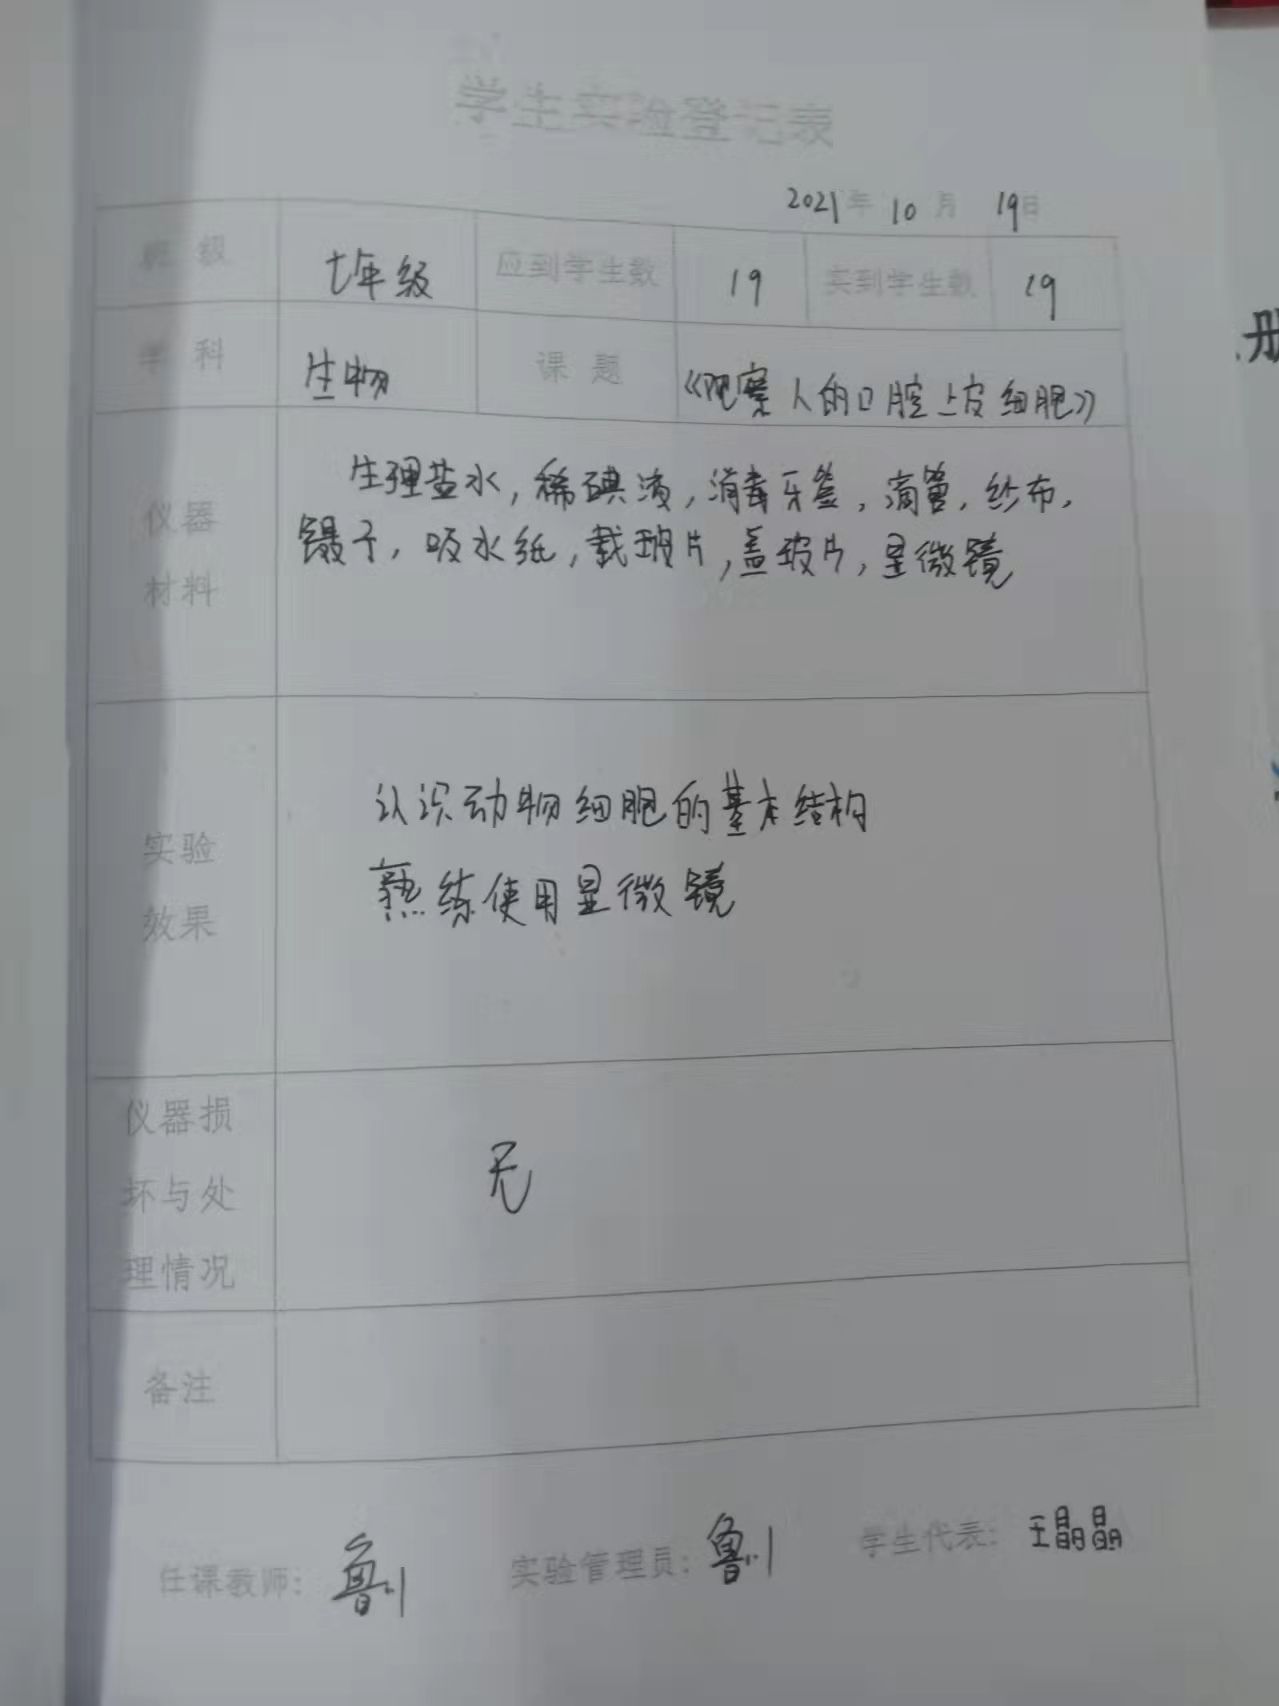 学生实验登记表
2021年 10月 19日
班 级 七年级 应到学生数 19 实到学生数 19
学 科 生物 课 题 《观察人的口腔上皮细胞》
仪器
材料
生理盐水，稀碘液，消毒牙签，滴管，纱布，
镊子，吸水纸，载玻片，盖玻片，显微镜
实验
效果
认识动物细胞的基本结构
熟练使用显微镜
仪器损
坏与处
理情况
无
备注
任课教师： 实验管理员： 学生代表：王晶晶
册